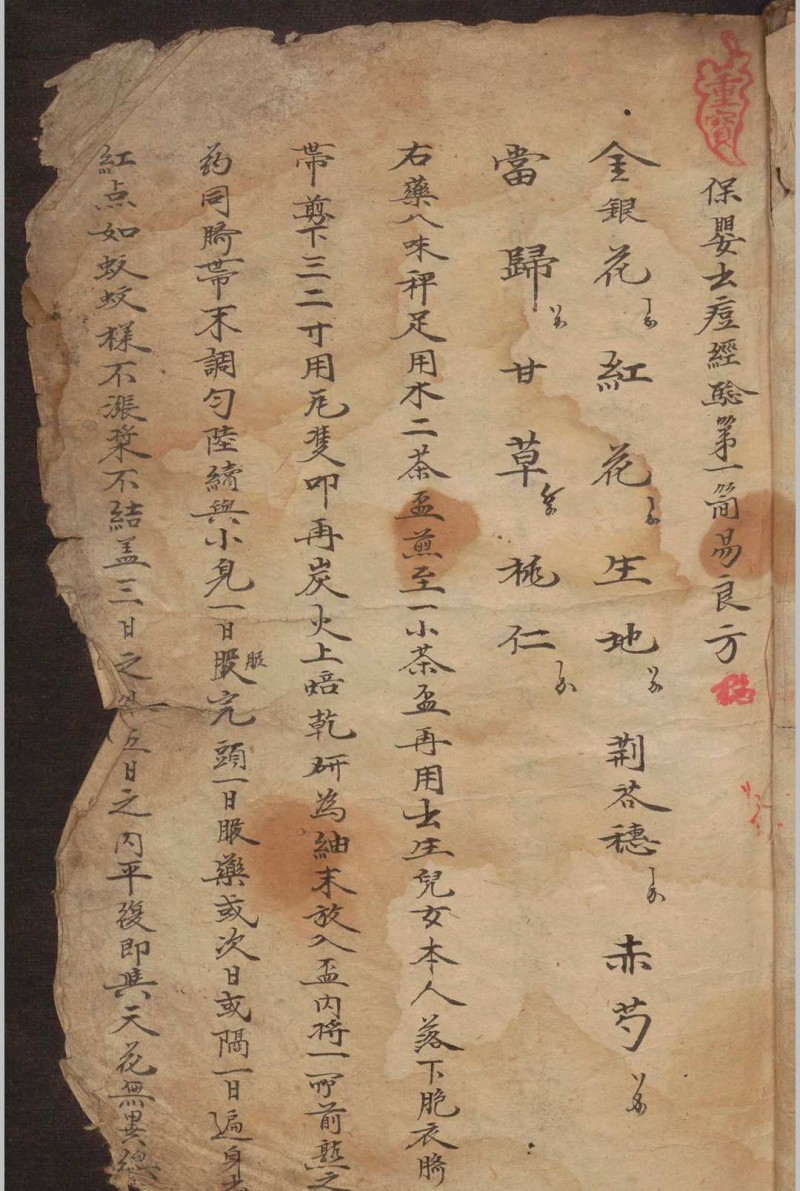 重寶
保嬰出痘經驗第一簡易良方
金銀花 紅花 生地 荆芥穗 赤芍
當歸 甘草 桃仁
右藥八味秤足用水二茶盃煎至一小茶盃再用出生兒女本人落下胞衣臍
帶剪下三二寸用瓦隻叩再炭火上焙乾研為細末放入盃内将前熬之
药同臍帶末調匀陸續與小兒一日服完頭一日服藥或次日或隔一日遍身
紅点如蚊蚊樣不漲漿不結盖三日之 五日之内平復即與天花無異